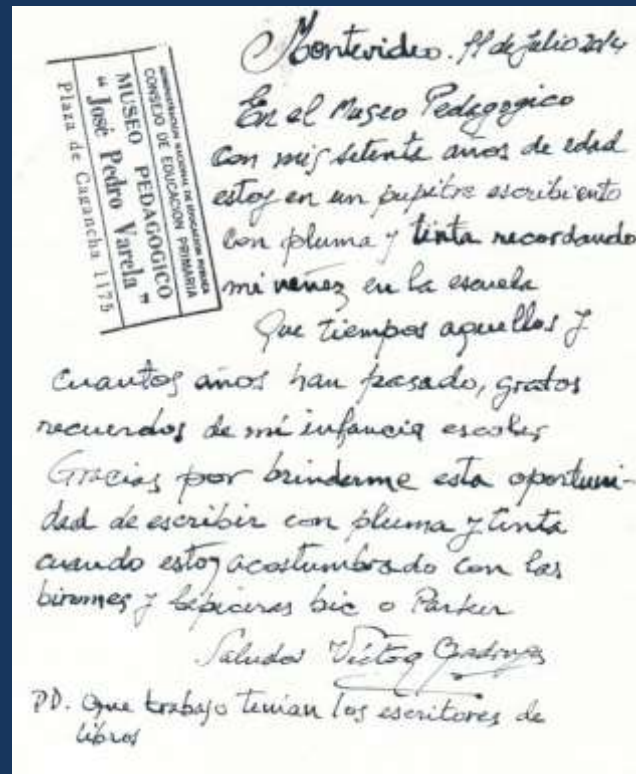 Montevideo. 11 de Julio 2014
ADMINISTRACION NACIONAL DE EDUCACION PUBLICA
CONSEJO DE EDUCACION PRIMARIA
MUSEO PEDAGOGICO
"José Pedro Varela"
Plaza de Cagancha 1175
En el Museo Pedagogico
con mis setenta anos de edad
estoy en un pupitre escribiento
con pluma y tinta recordando
mi niñez en la escuela
Que tiempos aquellos y
cuantos años han pasado, gratos
recuerdos de mi infancia escolar
Gracias por brindarme esta oportuni-
dad de escribir con pluma y tinta
cuando estoy acostumbrado con las
biromes y lapiceras bic o Parker
Saludos Victor
PD. Que trabajo tenian los escritores de
libros